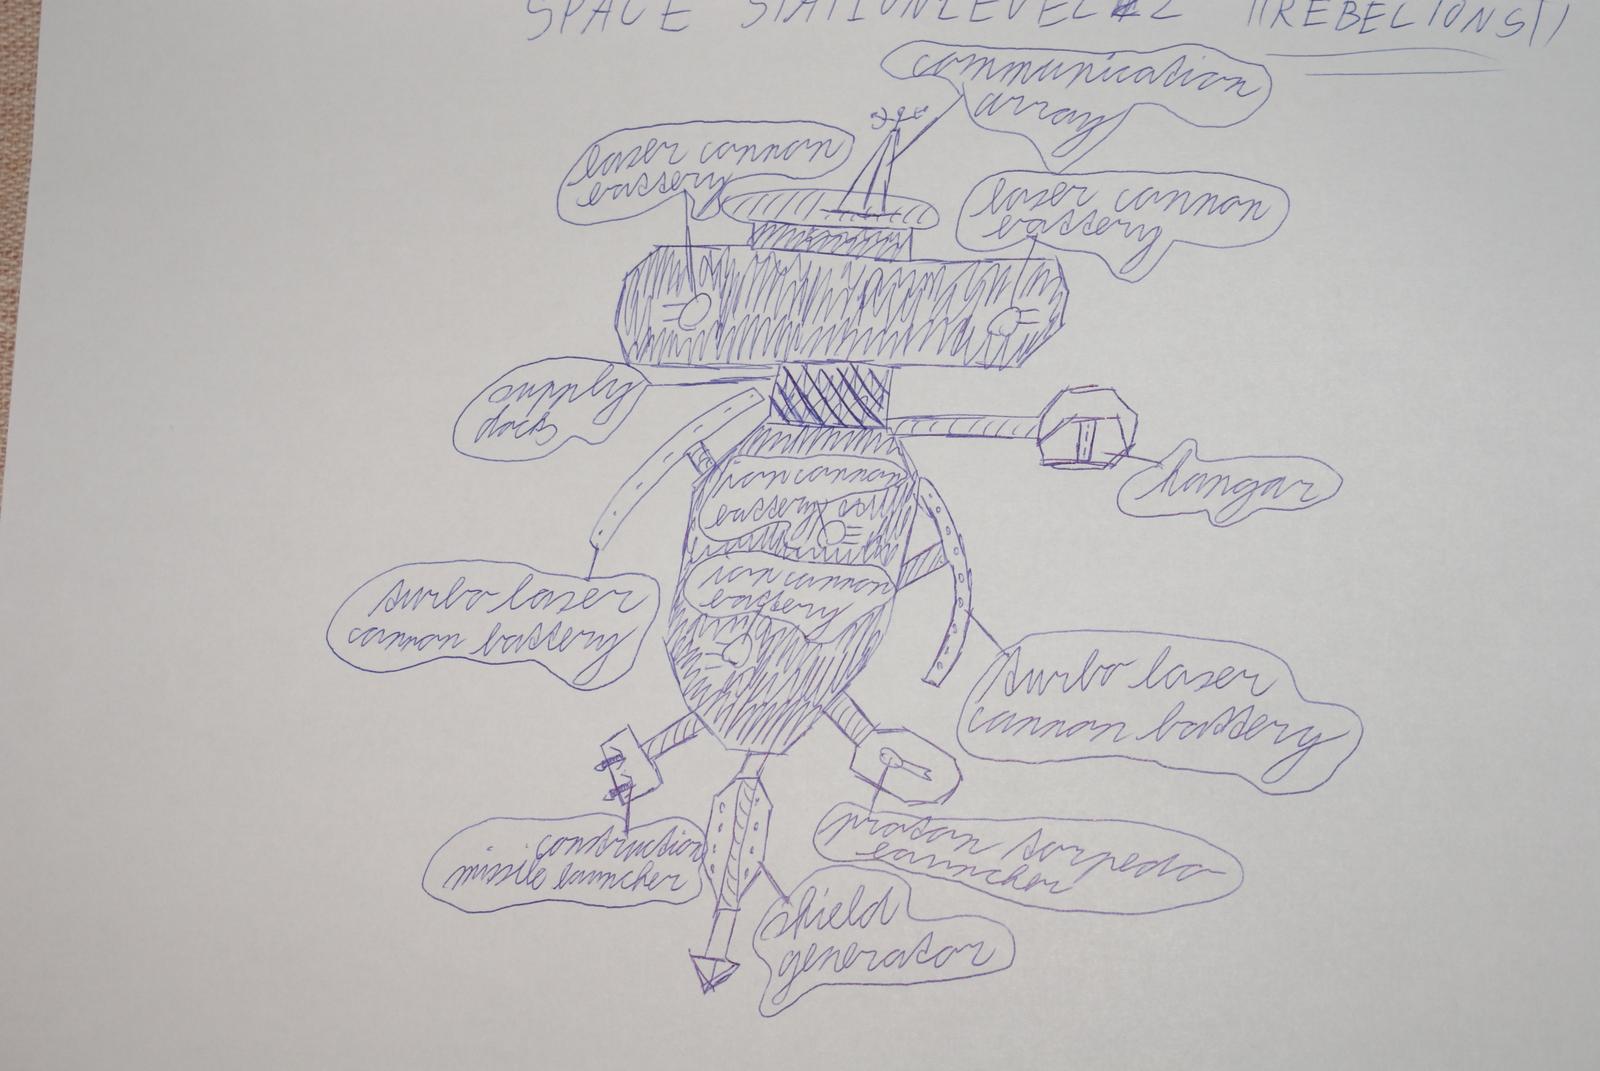 SPACE STATION LEVEL 2 "REBELIONS"
communication
array
laser cannon
battery
laser cannon
battery
supply
dock
hangar
ion cannon
battery
ion cannon
battery
turbo laser
cannon battery
turbo laser
cannon battery
construction
missile launcher
proton torpedo
launcher
shield
generator